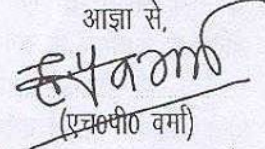 आज्ञा से,
(एच०पी० वर्मा)